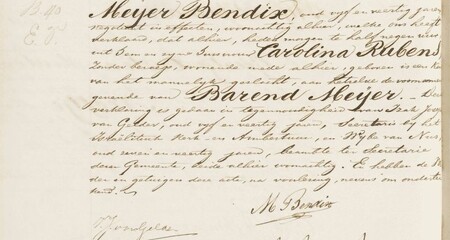 B 40
Meijer Bendix, oud vijf en veertig jaren
negotiant in effecten, woonachtig alhier, welke ons heeft
verklaard, dat alhier, heden morgen te half negen ure
uit hem en zijne huisvrouw Carolina Rubens
zonder beroep, wonende mede alhier, geboren is een kind
van het mannelijk geslacht, aan hetwelk de voornamen
gegeven van Barend Meijer. Deze
verklaring is gedaan in tegenwoordigheid van Izak
van Gelder, oud vijf en veertig jaren, Secretaris bij het
Israelitisch Kerk en Armbestuur, en
oud zeven en veertig jaren, beambte ter Secretarie
dezer Gemeente, beide alhier woonachtig. En hebben de
en getuigen deze acte, na voorlezing, nevens ons onderte
kend.
M Bendix
van Gelder